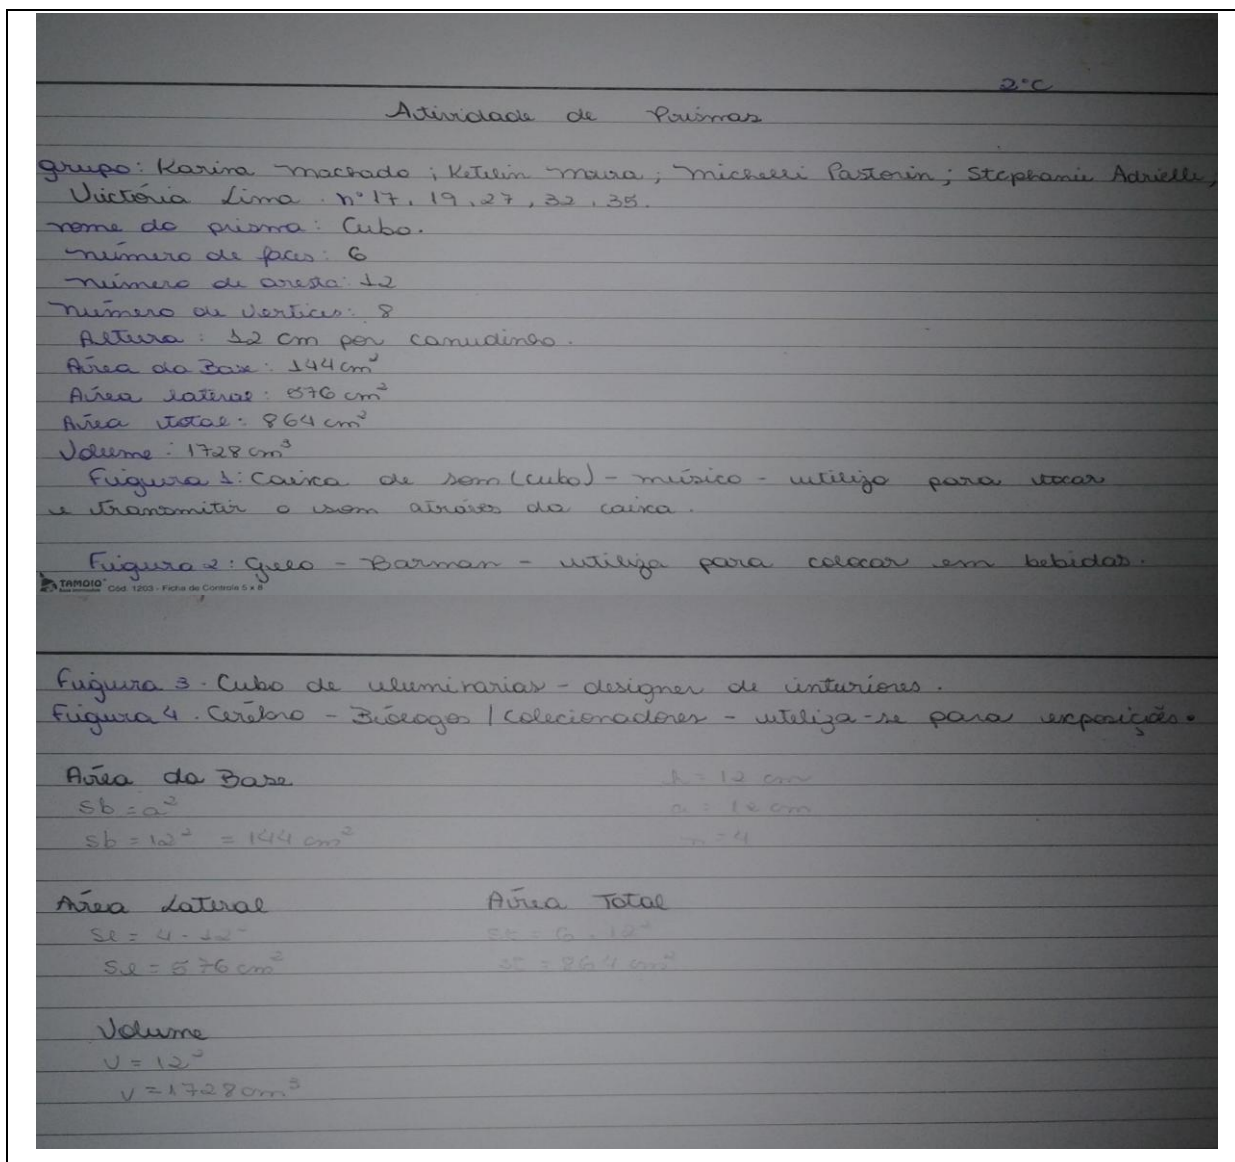 2°C
Atividade de Prismas
grupo: Karina Machado ; Ketelin Moura ; Michelli Pastorin ; Stephanie Adrielle,
Victória Lima. nº 17, 19, 27, 32, 35.
nome do prisma: Cubo.
número de faces: 6
número de aresta: 12
número de Vertices: 8
Altura: 12 cm por canudinho.
Área da Base: 144 cm²
Área lateral: 576 cm²
Área total: 864 cm²
Volume: 1728 cm³
Figura 1: Caixa de som (cubo) - músico - utiliza para tocar
e transmitir o som através da caixa.
Figura 2: Gelo - Barman - utiliza para colocar em bebidas.
TAMOIO Cód. 1203 - Ficha de Controle 5 x 8
Figura 3 - Cubo de iluminarias - designer de inturiores.
Figura 4. Cerébro - Biólogos / Colecionadores - utiliza-se para exposição.
Área da Base h = 12 cm
Sb = a² a = 12 cm
Sb = 12² = 144 cm² n = 4
Área Lateral Área Total
Sl = 4 . 12² St = 6 . 12²
Sl = 576 cm² St = 864 cm²
Volume
V = 12³
V = 1728 cm³